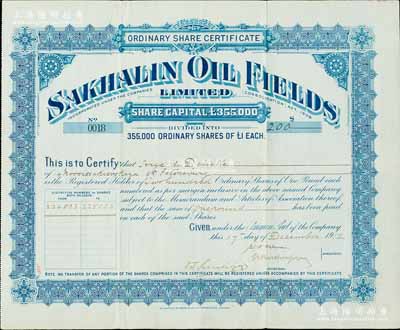 ORDINARY SHARE CERTIFICATE
SAKHALIN OIL FIELDS
LIMITED.
INCORPORATED UNDER THE COMPANIES (CONSOLIDATION) ACT, 1908
SHARE CAPITAL £355,000
No 0018
200
DIVIDED INTO
355,000 ORDINARY SHARES OF £1 EACH.
This is to Certify that
of
is the Registered Holder of Two hundred Ordinary Shares of One Pound each
DISTINCTIVE NUMBERS OF SHARES
BOTH INCLUSIVE
FROM TO
numbered as per margin inclusive in the above named Company
subject to the Memorandum and Articles of Association thereof,
and that the sum of One pound has been paid
on each of the said Shares.
Given under the Common Seal of the Company
this 17 day of December 191
NOTE. NO TRANSFER OF ANY PORTION OF THE SHARES COMPRISED IN THIS CERTIFICATE WILL BE REGISTERED UNLESS ACCOMPANIED BY THIS CERTIFICATE